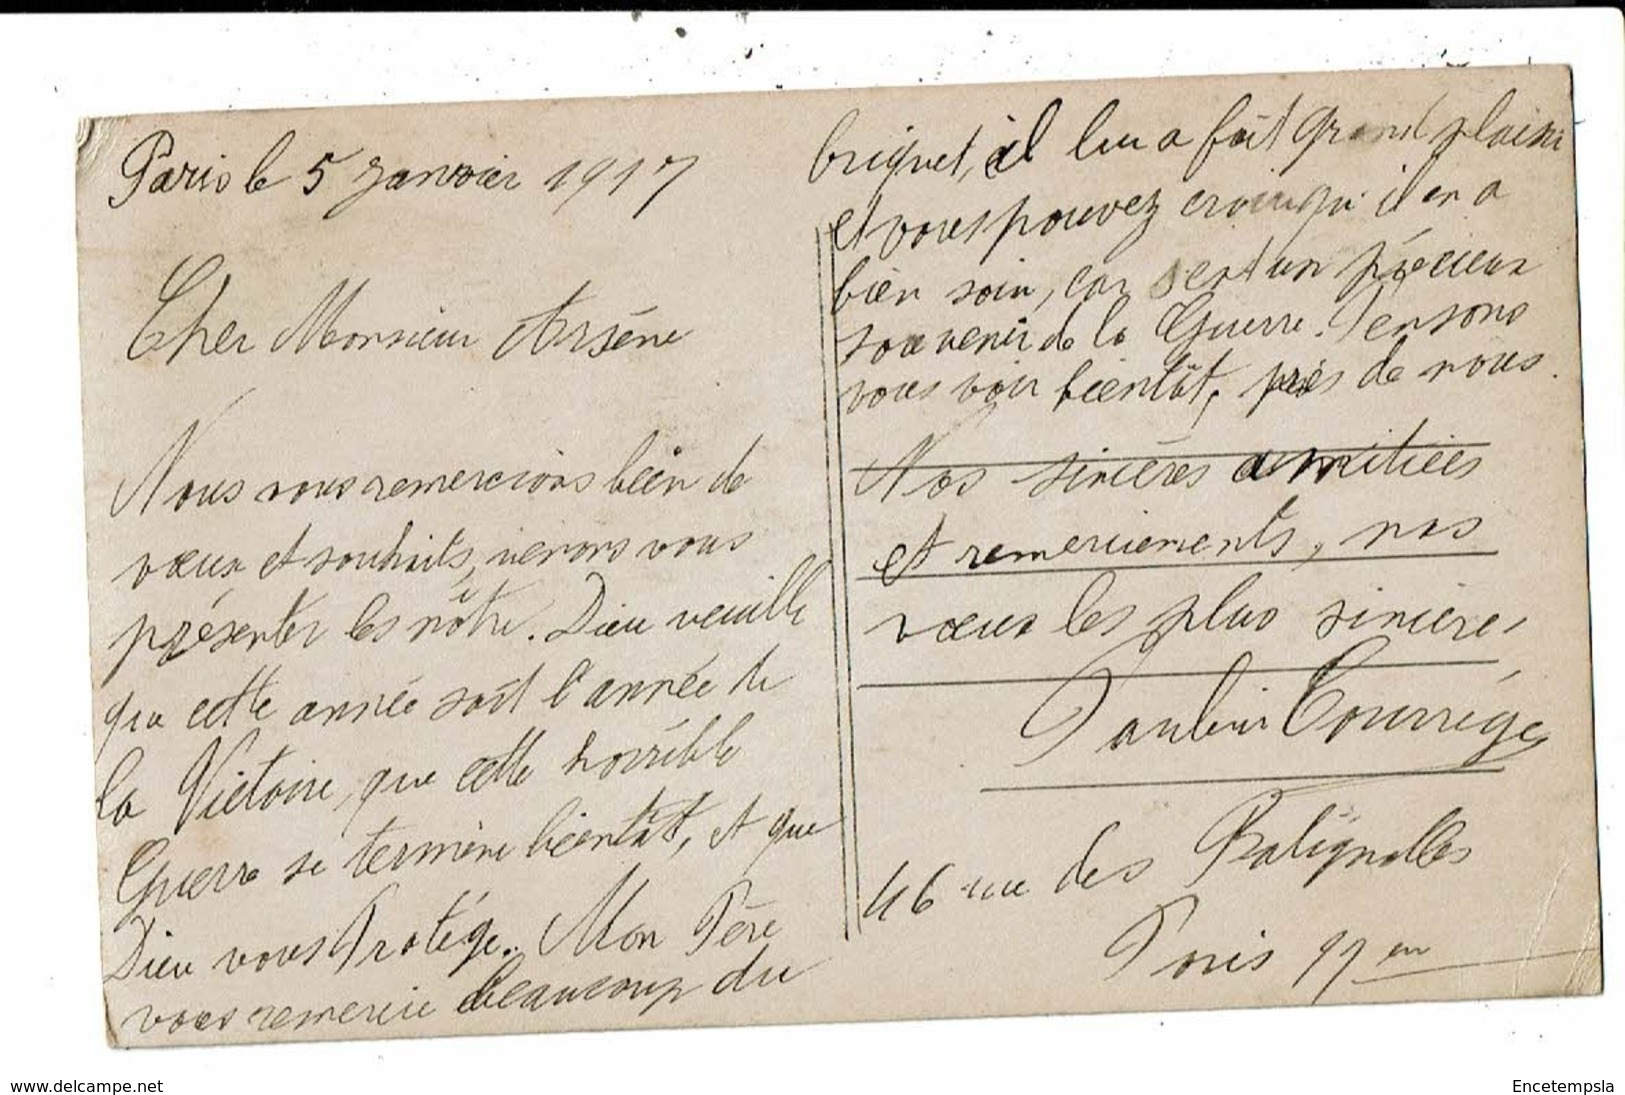 Paris le 5 Janvier 1917
Cher Monsieur Arsène
Nous vous remercions bien de
vœux et souhaits, venons vous
présenter les nôtre. Dieu veuille
que cette année soit l'année de
la Victoire, que cette horrible
Guerre se termine bientôt, et que
Dieu vous Protège. Mon Père
vous remercie beaucoup du
briquet, il lui a fait grand plaisir
et vous pouvez croire qu'il en a
bien soin, car sest un précieux
souvenir de la Guerre. Pensons
vous voir bientôt, près de nous.
Nos sincères amitiées
et remerciements, nos
vœux les plus sincère,
Paulin Courrège
46 rue des Batignolles
Paris 17 em
www.delcampe.net
Encetempsla